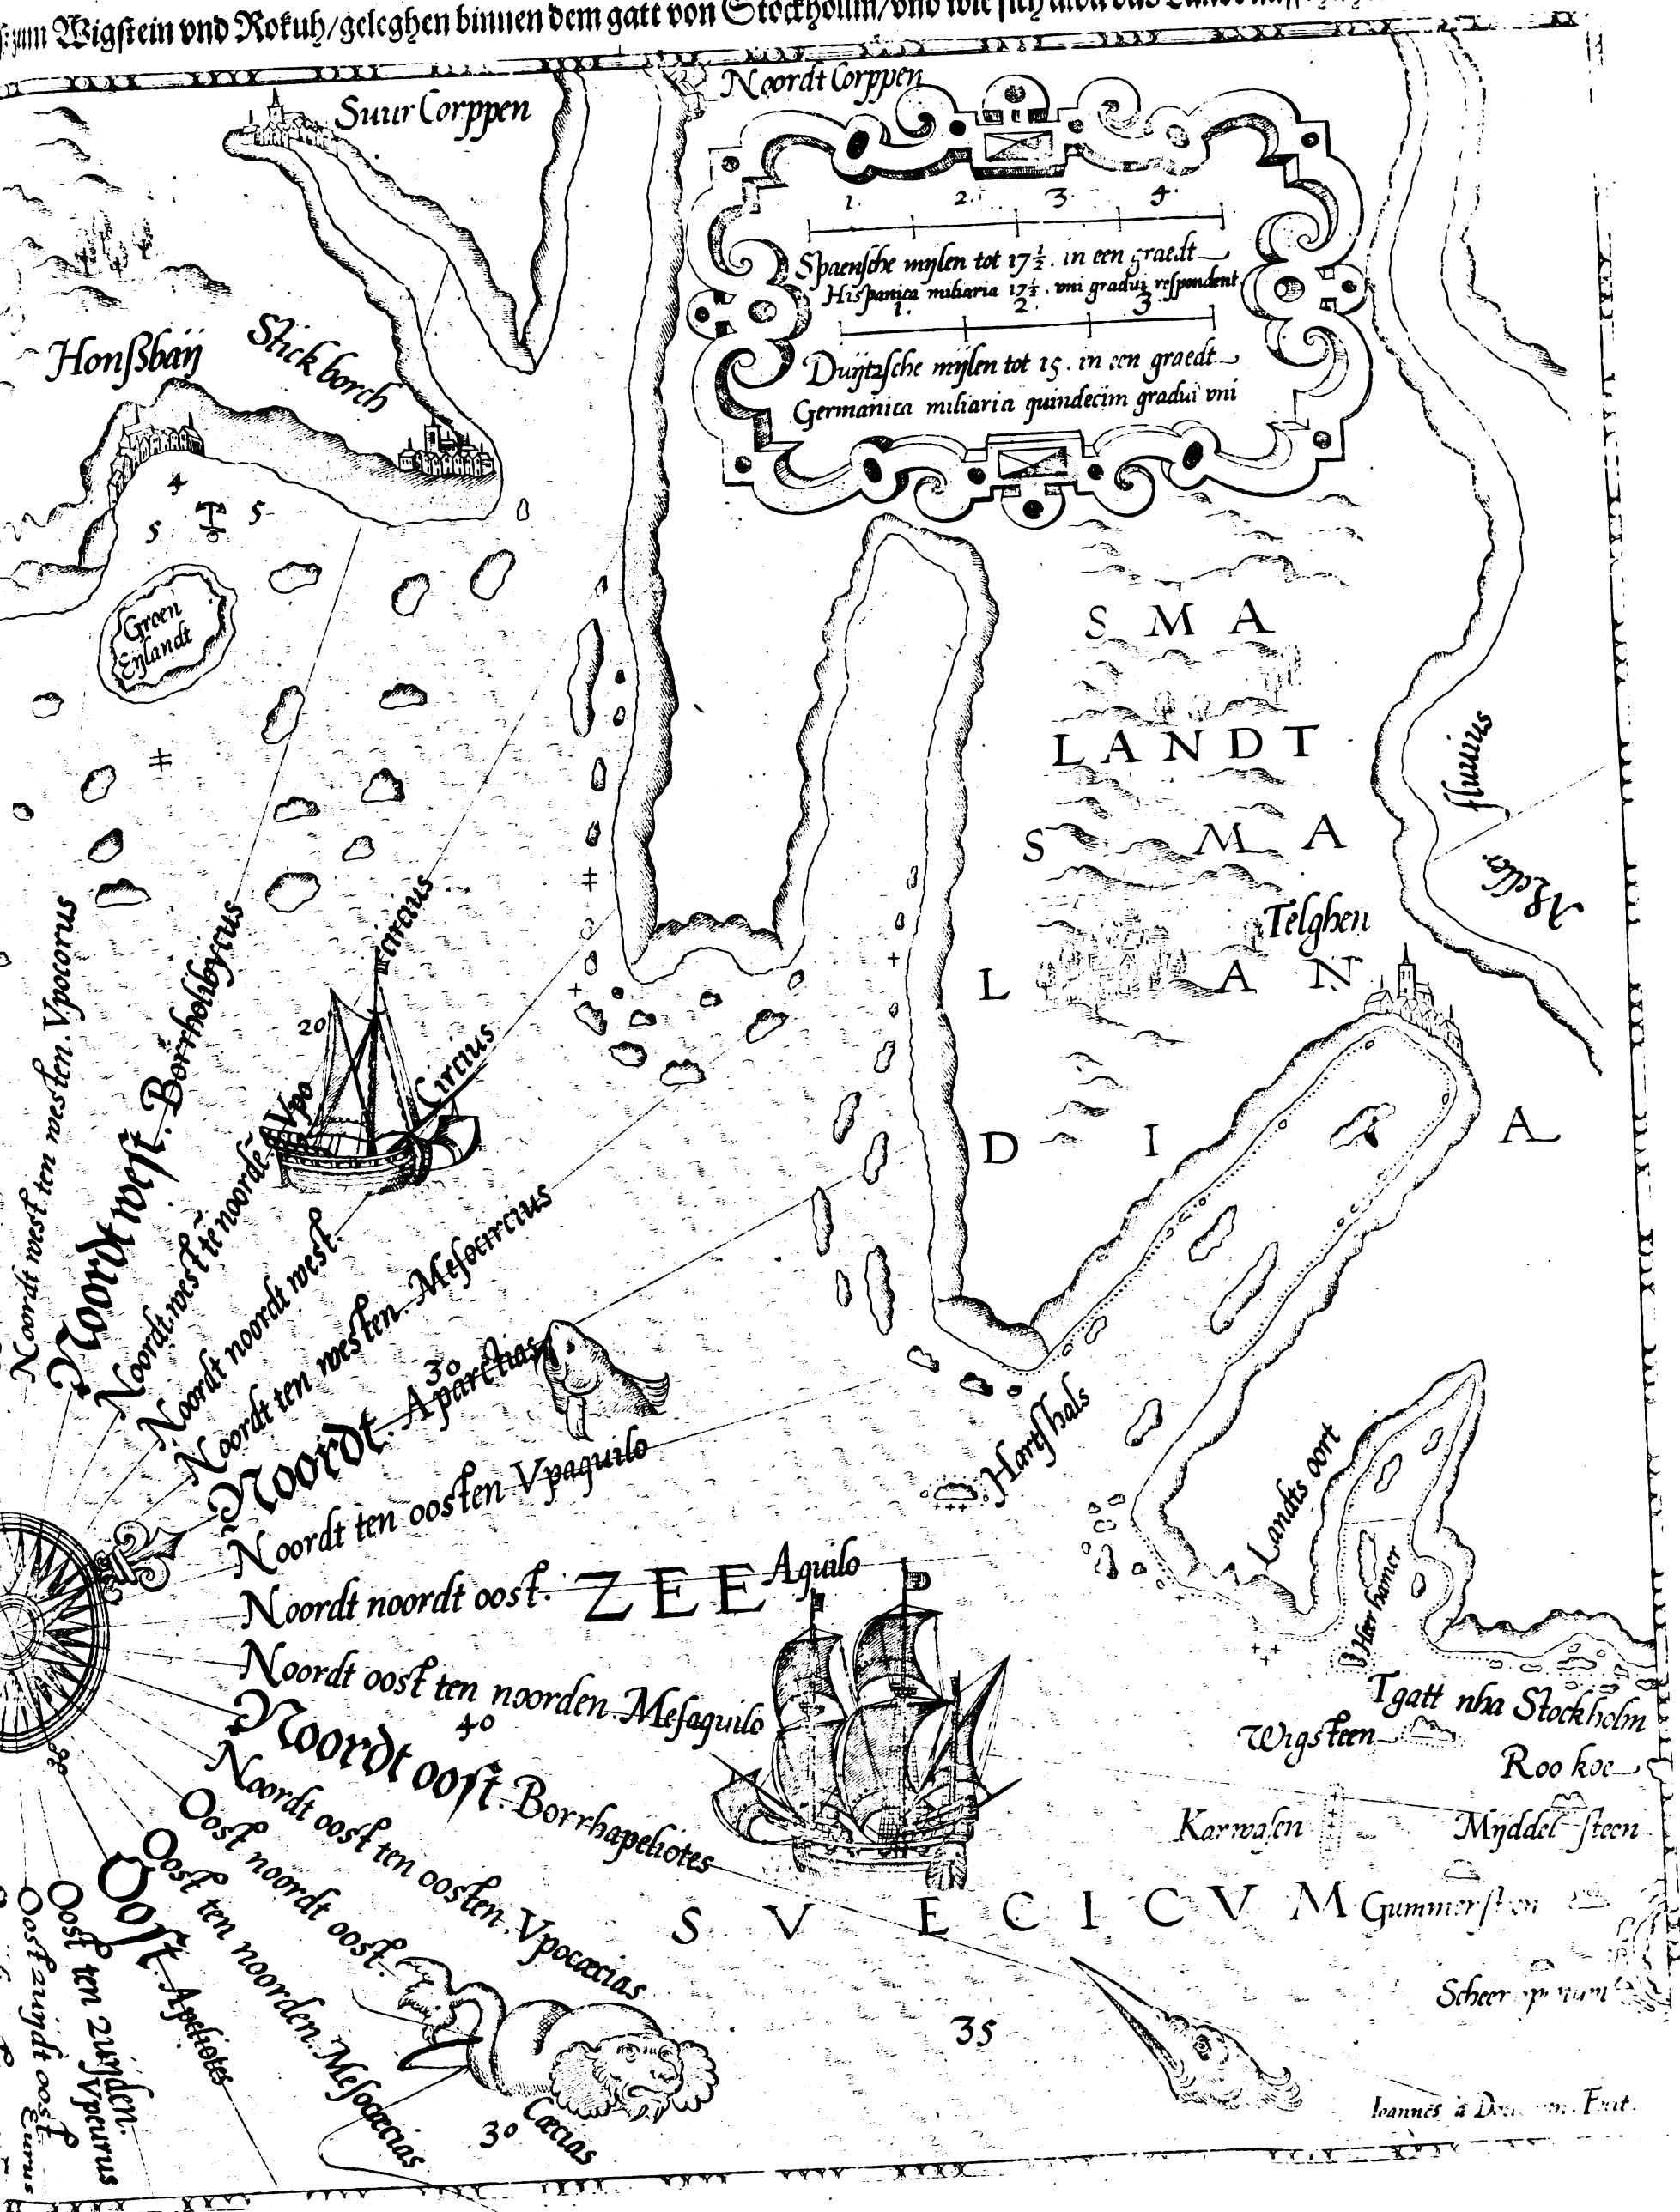 zum Wigstein vnd Rokuh/geleghen binnen dem gatt von Stockholm/vnd wie sich
Noordt Corppen
Suur Corppen
1. 2. 3. 4.
Spaensche mijlen tot 17 1/2. in een graedt
Hispanica miliaria 17 1/2. vni gradui respondent
1. 2. 3.
Duijtzsche mijlen tot 15. in een graedt
Germanica miliaria quindecim gradui vni
Honßbaij
Stick borch
4
5 5
Groen
Eijlandt
SMA
LANDT
SMA
LAN
DIA
fluuius
Meller
Telghen
Noordt west ten westen. Vpocorus
Noordt west. Borrholibycus
Noordt west tē noordē. Vpo
circius
20
Noordt noordt west.
Circius
Noordt ten westen. Mesocircius
30
Noordt. Aparctias
Noordt ten oosten Vpaquilo
Noordt noordt oost. Aquilo
ZEE
Noordt oost ten noorden. Mesaquilo
40
Noordt oost. Borrhapeliotes
Noordt oost ten oosten. Vpocæcias
Oost noordt oost.
Cæcias
Oost ten noorden. Mesocæcias
Oost. Apeliotes
Oost ten zuijden. Vpeurus
Oost zuijdt oost. Eurus
Harsshals
Landts oort
Heer hamer
Tgatt nha Stockholm
Wigsteen
Roo koe
Karwasen
Mijddel steen
SVECICVM
35
30
Ioannes à